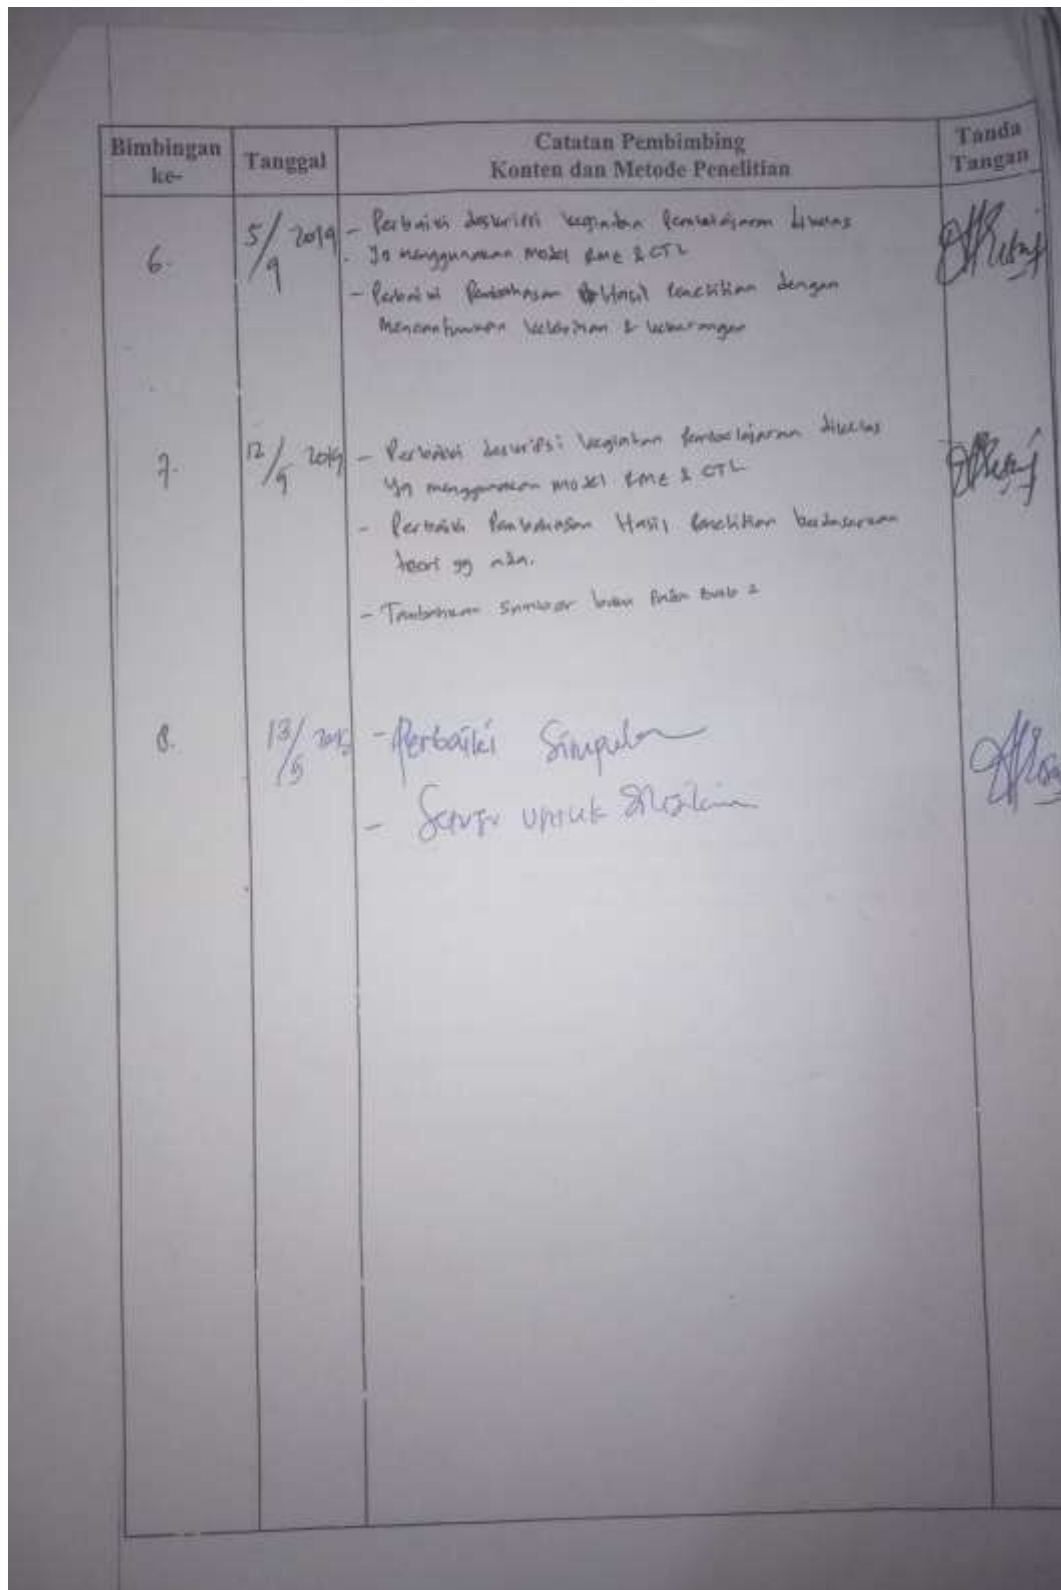 Bimbingan ke-
Tanggal
Catatan Pembimbing
Konten dan Metode Penelitian
Tanda Tangan
6.
5/9 2019
- Perbaiki deskripsi kegiatan pembelajaran dikelas
yg menggunakan model RME & CTL
- Perbaiki Pembahasan Hasil Penelitian dengan
mencantumkan kelebihan & kekurangan
7.
12/9 2019
- Perbaiki deskripsi kegiatan pembelajaran dikelas
yg menggunakan model RME & CTL
- Perbaiki Pembahasan Hasil Penelitian berdasarkan
teori yg ada.
- Tambahkan sumber buku pada Bab 2
8.
13/9
- Perbaiki Simpulan
- untuk